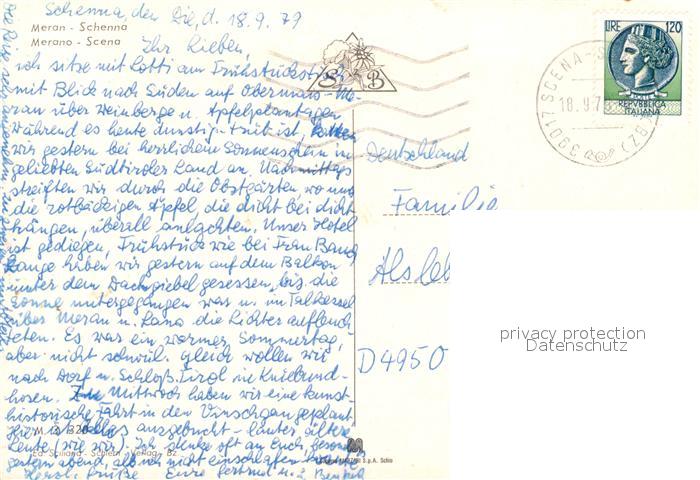 Schenna, den Die, d. 18.9.79
Meran - Schenna
Merano - Scena
Ihr Lieben,
ich sitze mit Lotti am Frühstückstisch
mit Blick nach Süden auf Obermais-Me-
ran über Weinberge u. Apfelplantagen
Während es heute dunstig-trüb ist, hatten
wir gestern bei herrlichem Sonnenschein im
geliebten Südtiroler Land an. Nachmittags
streiften wir durch die Obstgärten wo uns
die rotbäckigen Äpfel, die dicht bei dicht
hängen, überall anlachten. Unser Hotel
ist gediegen, Frühstück wie bei Frau Bauch
Lange haben wir gestern auf dem Balkon
unter dem Dachgiebel gesessen, bis die
Sonne untergegangen war u. im Talkessel
über Meran u. Lana die Lichter aufleuch
teten. Es war ein warmer Sommertag,
aber nicht schwül. Gleich wollen wir
nach Dorf u. Schloß Tirol in Kniebund-
hosen. Mittwoch haben wir eine kunst-
historische Fahrt in den Vinschgau geplant
Hier ist alles ausgebucht - lauter ältere
Leute (wie wir). Ich denke oft an Euch, besonders
gestern abend, als ich nicht einschlafen konnte
Herzl. Grüße Eure Gertrud u.
M B 320
Ed. Sciliana - Schlern - Verlag - Bz
S.p.A.
S B
LIRE 120
REPVBBLICA
ITALIANA
39017 SCENA-S
(BZ)
18.9.7
Deutschland
Familie
Alsleb
D4950
privacy protection
Datenschutz